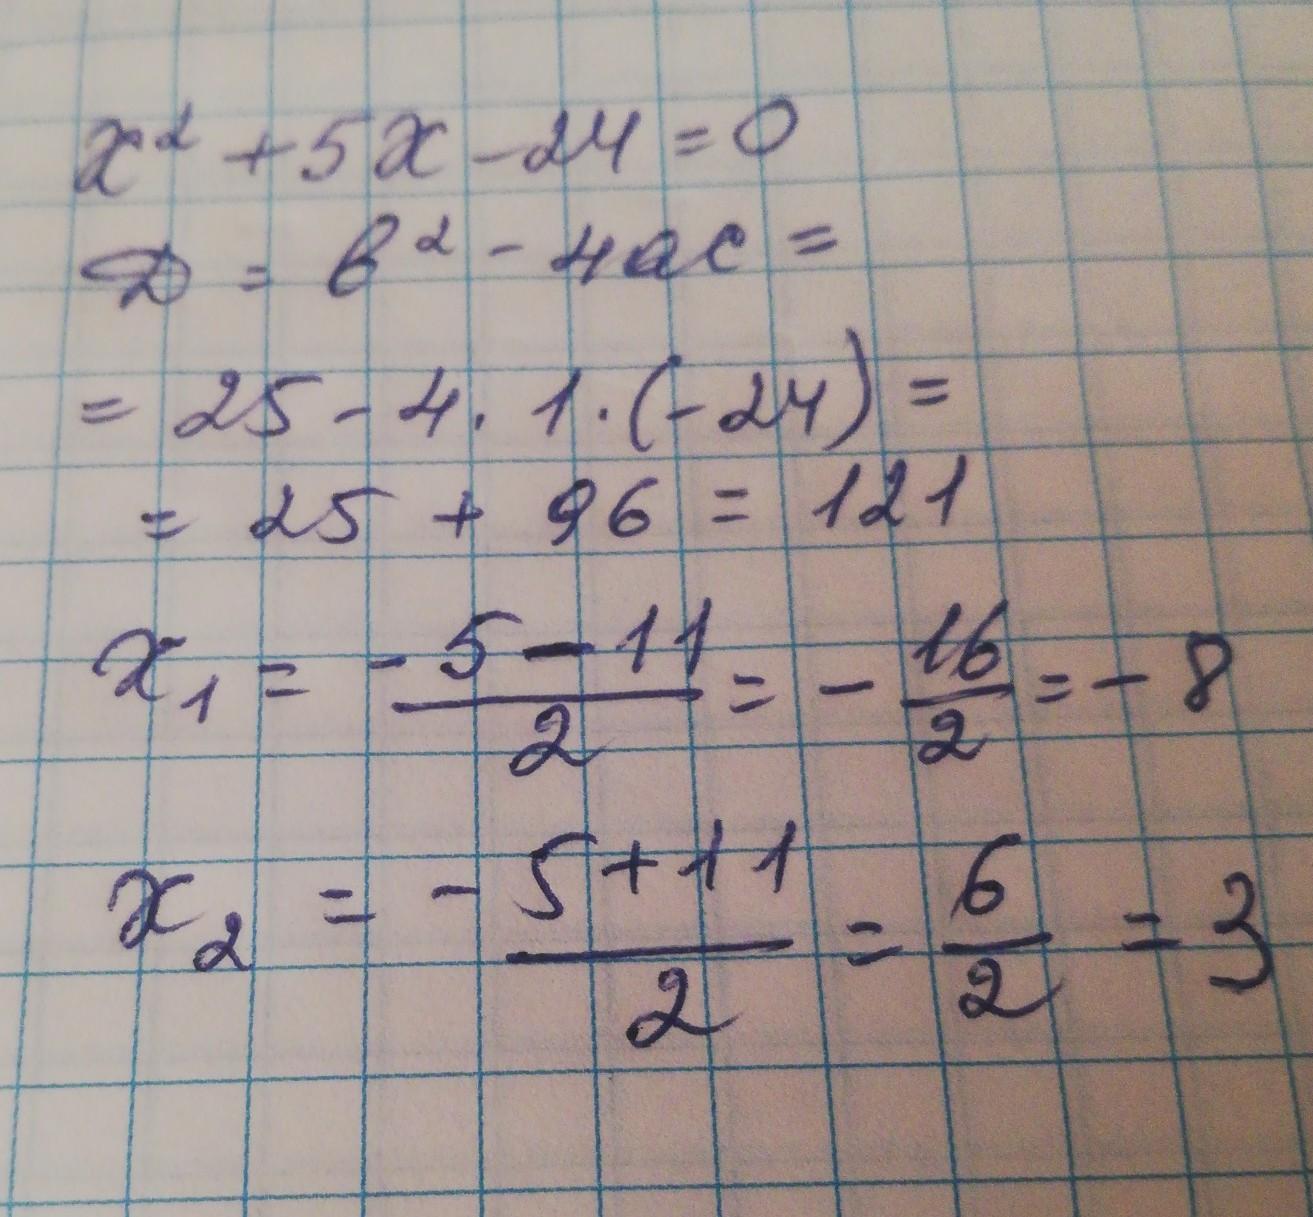 x² + 5x - 24 = 0
D = b² - 4ac =
= 25 - 4 · 1 · (-24) =
= 25 + 96 = 121
x₁ = (-5 - 11)/2 = -16/2 = -8
x₂ = -(5 + 11)/2 = 6/2 = 3